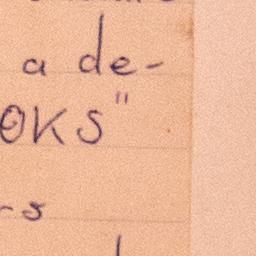 a de-
OKS"
rs